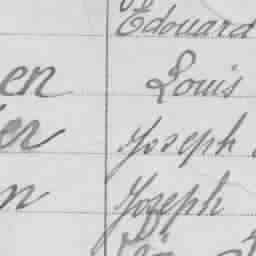 Edouard
en Louis
er Joseph
n Joseph